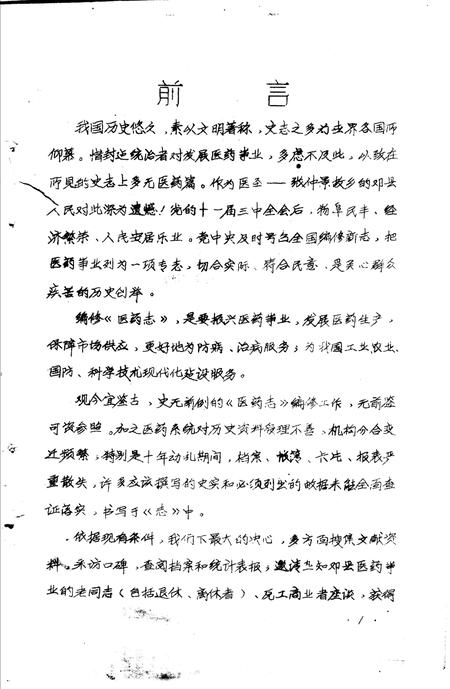 前言
我国历史悠久，素以文明著称，史志之多为世界各国所
仰慕。惜封建统治者对发展医药事业，多虑不及此，以致在
所见的史志上多无医药篇。作为医圣——张仲景故乡的邓县
人民对此深为遗憾！党的十一届三中全会后，物阜民丰、经
济繁荣、人民安居乐业。党中央及时号召全国编修新志，把
医药事业列为一项专志，切合实际、符合民意、是关心群众
疾苦的历史创举。
编修《医药志》，是要振兴医药事业，发展医药生产，
保障市场供应，更好地为防病、治病服务；为我国工业农业、
国防、科学技术现代化建设服务。
现今宜鉴古，史无前例的《医药志》编修工作，无前鉴
可资参照。加之医药系统对历史资料管理不善、机构分合变
迁频繁，特别是十年动乱期间，档案、帐簿、卡片、报表严
重散失，许多应该撰写的史实和必须列出的数据未能全面查
证落实，书写于《志》中。
依据现有条件，我们下最大的决心，多方面搜集文献资
料。采访口碑，查阅档案和统计表报；邀请熟知邓县医药事
业的老同志（包括退休、离休者）、死工商业者座谈，获得
1